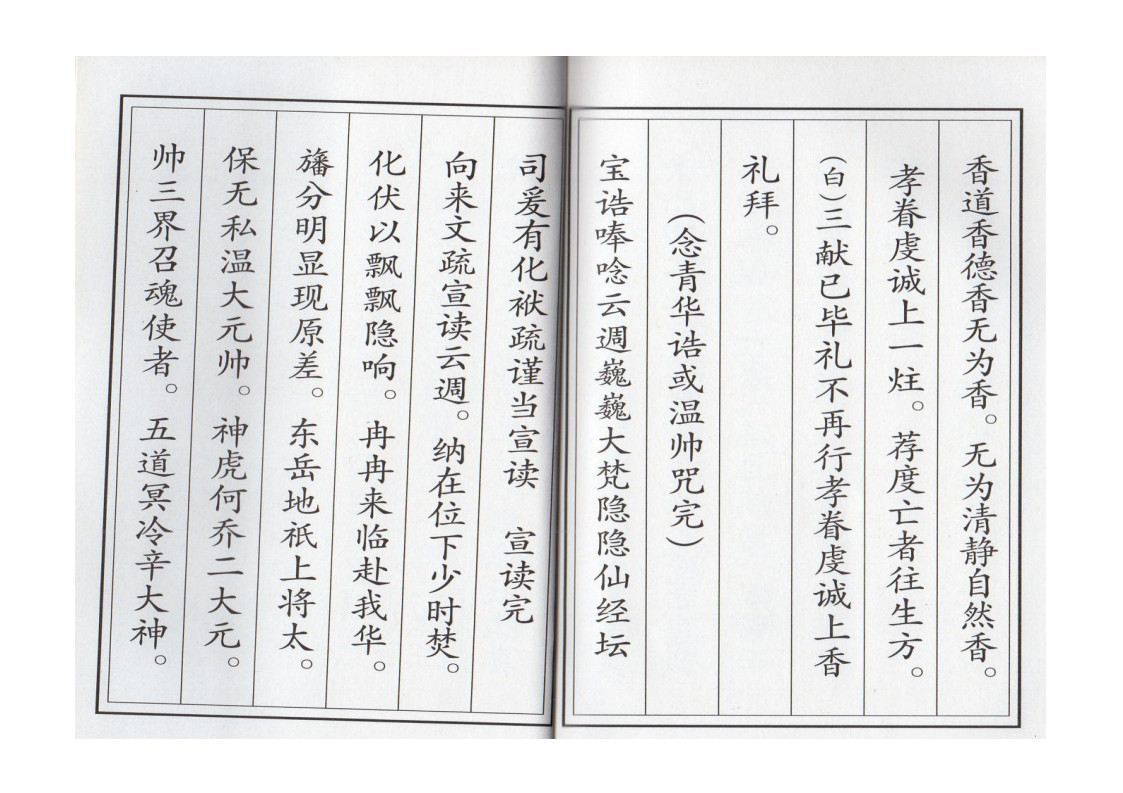 香道香德香无为香。无为清静自然香。
孝眷虔诚上一炷。荐度亡者往生方。
（白）三献已毕礼不再行孝眷虔诚上香
礼拜。
（念青华诰或温帅咒完）
宝诰唪唸云週巍巍大梵隐隐仙经坛
司爰有化袱疏谨当宣读　宣读完
向来文疏宣读云週。纳在位下少时焚。
化伏以飘飘隐响。冉冉来临赴我华。
旛分明显现原差。东岳地祇上将太。
保无私温大元帅。神虎何乔二大元。
帅三界召魂使者。五道冥冷辛大神。